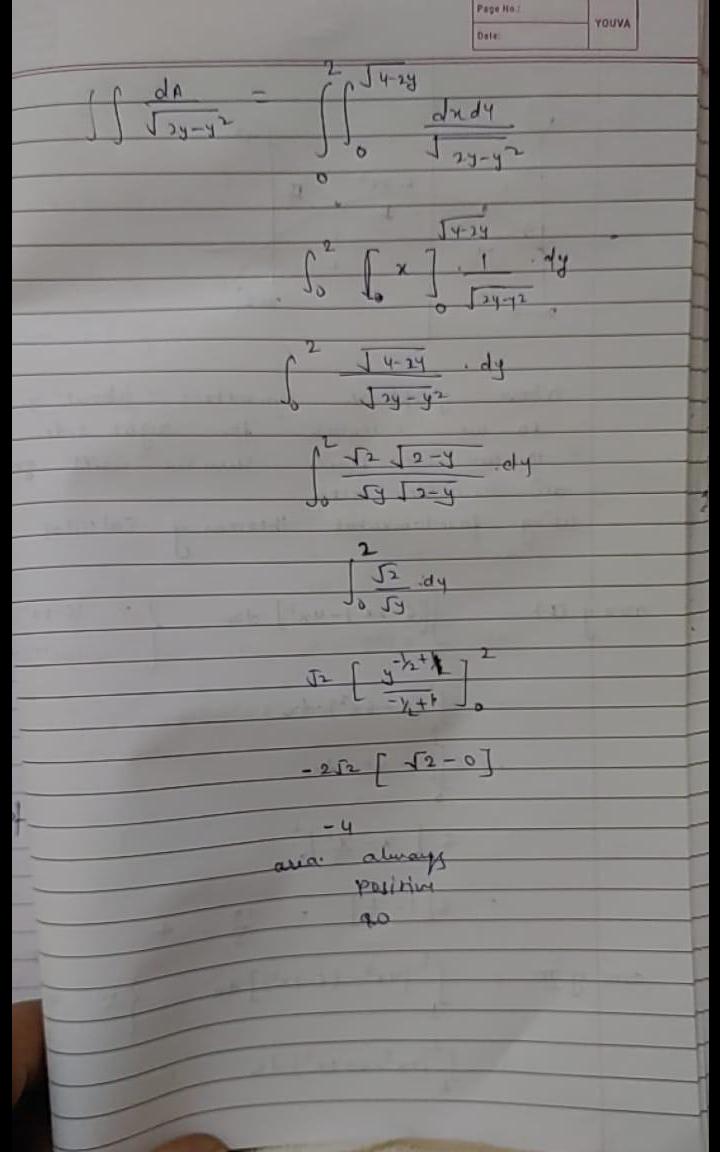 Page No.:
YOUVA
Date:
∫∫ dA/√(2y-y²) = ∫₀² ∫₀^√(4-2y) dx dy/√(2y-y²)
∫₀² [x]₀^√(4-2y) · 1/√(2y-y²) · dy
∫₀² √(4-2y)/√(2y-y²) · dy
∫₀² √2 √(2-y)/(√y √(2-y)) · dy
∫₀² √2/√y · dy
√2 [y^(-1/2+1)/(-1/2+1)]₀²
-2√2 [√2-0]
-4
area. always
positive